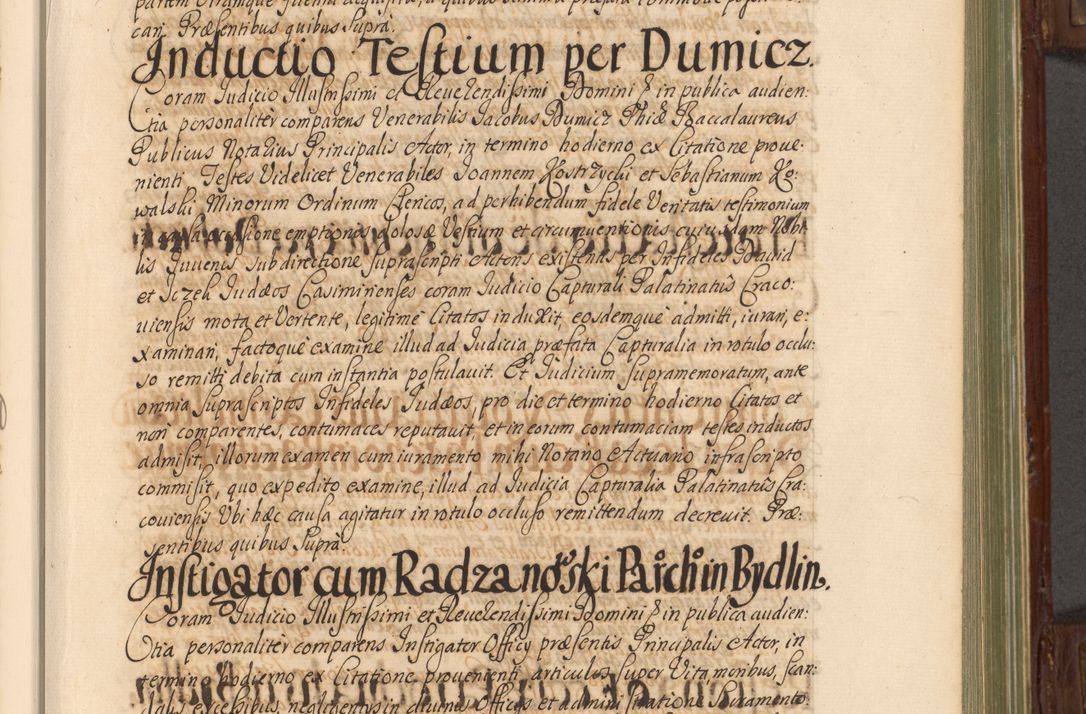 partem utramque
can. Præsentibus quibus supra.
Inductio Testium per Dumicz.
Coram Iudicio Illustrissimi et Reverendissimi Domini & in publica audien:
tia personaliter comparens Venerabilis Iacobus Dumicz Phiæ Baccalaureus
Publicus Notarius Principalis Actor, in termino hodierno ex Citatione prove:
nienti Testes Videlicet Venerabiles Joannem Kostrzycki et Sebastianum Ko:
walski Minorum Ordinum Clericos, ad perhibendum fidele Veritatis testimonium
in causa occasione emptionis dolosæ Vestium et circumventionis cuiusdam Nobi
lis Juvenis sub directione suprascripti Actoris existentis per Infideles David
et Iczek Iudæos Casimirienses coram Iudicio Capturali Palatinatus Craco:
viensis mota et Vertente, legitime Citatos induxit, eosdemque admitti, iurari, e:
xaminari, factoque examine illud ad Iudicia præfata Capturalia in rotulo occlu:
so remitti debita cum instantia postulavit. Et Iudicium supramemoratum, ante
omnia suprascriptos Infideles Iudæos, pro die et termino hodierno Citatos et
non comparentes, contumaces reputavit, et in eorum contumaciam testes inductos
admisit, illorum examen cum iuramento mihi Notario Actuario infrascripto
commisit, quo expedito examine, illud ad Iudicia Capturalia Palatinatus Cra:
coviensis Ubi hæc causa agitatur in rotulo occluso remittendum decrevit. Præ:
sentibus quibus supra.
Instigator cum Radzanowski Paroch in Bydlin.
Coram Iudicio Illustrissimi et Reverendissimi Domini & in publica audien:
tia personaliter comparens Instigator Officy præsentis Principalis Actor, in
termino hodierno ex Citatione provenienti articulos super Vita, moribus, scan:
dalis excessibus, negligentys in divinis Officys et administratione Sacramento: